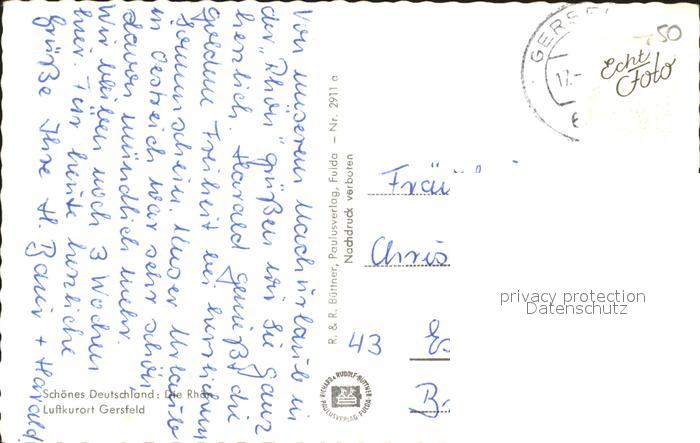 Von unserem Nachurlaub in
der "Rhön" grüßen wir Sie ganz
herzlich. Harald genießt die
goldene Freiheit bei herrlichem
Sonnenschein. Unser Urlaub
in Oestreich war sehr schön
davon mündlich mehr.
Wir bleiben noch 3 Wochen
hier. Für heute herzliche
Grüße Ihre H. Bauer + Harald
Schönes Deutschland: Die Rhön
Luftkurort Gersfeld
R. & R. Büttner, Paulusverlag, Fulda – Nr. 2911 a
Nachdruck verboten
RICHARD & RUDOLF BÜTTNER
PAULUSVERLAG FULDA
GERSF
17.-
50
Echt
Foto
Fräu
Chris
43 Es
privacy protection
Datenschutz